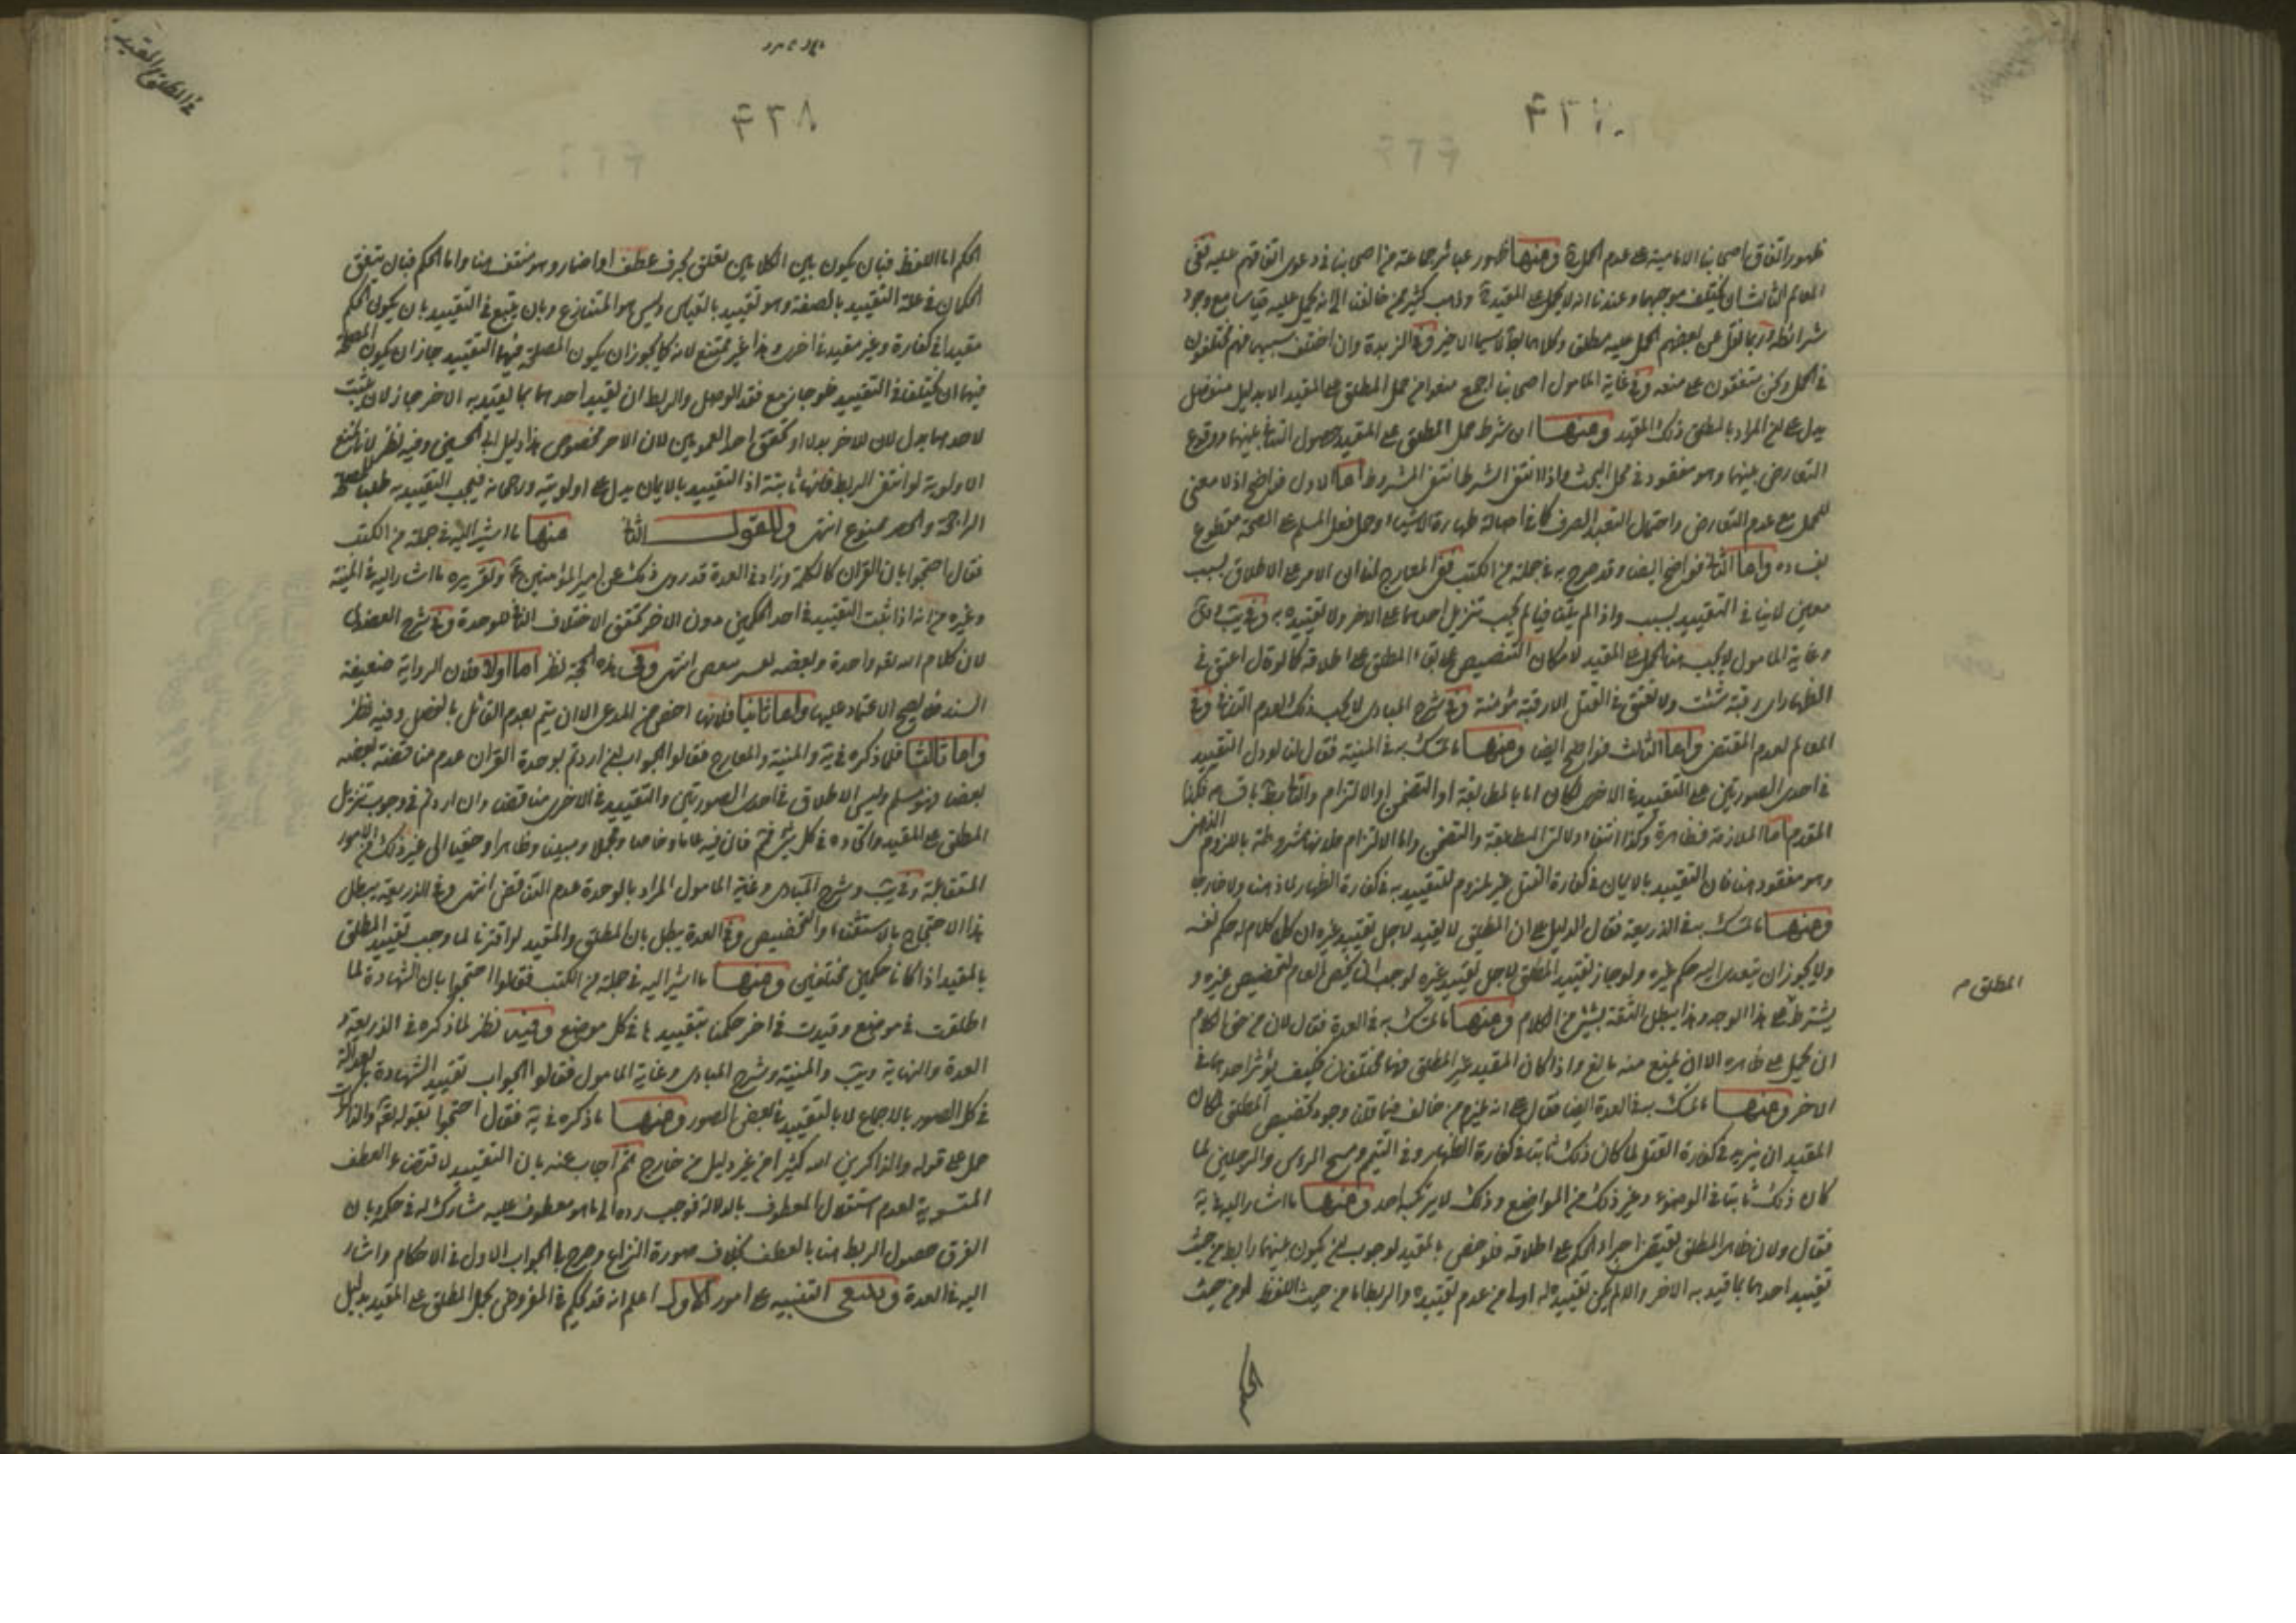 ظهور اتفاق اصحابنا الامامية على عدم الحمل ومنها ظهور عبائر جماعة من اصحابنا في دعوى اتفاقهم عليه ففي
المعالم الثالث ان يختلف موجبهما وعندنا انه لا يحمل على المقيد وذهب كثير من مخالفينا الى انه يحمل عليه قياسا مع وجود
شرائطه وربما نقل عن بعضهم الحمل عليه مطلقا وكلاهما باطل لا سيما الاخير وفي الزبدة وان اختلف سببهما فهم مختلفون
في الحمل ونحن متفقون على منعه وفي غاية المامول اصحابنا اجمع منعوا من حمل المطلق على المقيد الا بدليل منفصل
يدل على ان المراد بالمطلق ذلك المقيد ومنها ان شرط حمل المطلق على المقيد حصول التنافي بينهما ووقوع
التعارض بينهما وهو مفقود في محل البحث واذا انتفى الشرط انتفى المشروط اما الاول فواضح اذ لا معنى
للحمل مع عدم التعارض واحتمال التعبد الصرف كما في اصالة طهارة الاشياء وحمل فعل المسلم على الصحة مقطوع
بفساده واما الثاني فواضح ايضا وقد صرح به في جملة من الكتب ففي المعارج لنا ان الامر على الاطلاق بسبب
معين لا ينافي التقييد بسبب واذا لم يتنافيا لم يجب تنزيل احدهما على الاخر ولا تقييده به وفي يب ودي
وغاية المامول لا يجب هنا الحمل على المقيد لامكان التنصيص على بقاء المطلق على اطلاقه كما لو قال اعتق في
الظهار اي رقبة شئت ولا تعتق في القتل الا رقبة مؤمنة وفي شرح المبادي لا يجب ذلك لعدم التنافي وفي
المعالم لعدم المقتضى واما الثالث فواضح ايضا ومنها ما تمسك به في المنية فقال لنا لو دل التقييد
في احدى الصورتين على التقييد في الاخرى لكان اما بالمطابقة او التضمن او الالتزام والتالي باقسامه فكذا
المقدم اما الملازمة فظاهرة وكذا انتفاء دلالتي المطابقة والتضمن واما الالتزام فلانها مشروطة باللزوم الذهني
وهو مفقود هنا فان التقييد بالايمان في كفارة القتل غير ملزوم للتقييد به في كفارة الظهار لا ذهنا ولا خارجا
ومنها ما تمسك به في الذريعة فقال الدليل على ان المطلق لا يقيد لاجل تقييد غيره ان كل كلام له حكم نفسه
ولا يجوز ان يتعدى اليه حكم غيره ولو جاز تقييد المطلق لاجل تقييد غيره لوجب ان يخص العام لتخصيص غيره و
يشترط على هذا الوجه وهذا يبطل الثقة بشئ من الكلام ومنها ما تمسك به في العدة فقال لان من حق الكلام
ان يحمل على ظاهره الا ان يمنع منه مانع واذا كان المقيد غير المطلق فهما مختلفان فكيف يؤثر احدهما في
الاخر ومنها ما تمسك به في العدة ايضا فقال على انه يلزم من خالف فيما قلنا وجود تخصيص المطلق لمكان
المقيد ان يزيد في كفارة القتل لما كان ذلك ثابتا في كفارة الظهار وفي التيمم ومسح الراس والرجلين لما
كان ذلك ثابتا في الوضوء وغير ذلك من المواضع وذلك لا يرتكبه احد ومنها ما اشار اليه في ية
فقال ولان ظاهر المطلق يقتضي اجراء الحكم على اطلاقه فلو خص بالمقيد لوجب ان يكون بينهما رابط من حيث
تقييد احدهما بما قيد به الاخر والا لم يكن تقييده به اولى من عدم تقييده والربط اما من حيث اللفظ او من حيث
الحكم
المطلق م
في المطلق والمقيد
٤٢٨
الحكم اما اللفظ فبان يكون بين الكلامين تعلق بحرف عطف او اضمار وهو منتف هنا واما الحكم فبان يتفق
الحكمان في علة التقييد بالصفة وهو تقييد بالقياس وليس هو المتنازع وبان يمتنع في التقييد بان يكون الحكم
مقيدا في كفارة وغير مقيد في اخرى وهذا غير ممتنع لانه كما يجوز ان يكون المصلحة فيهما التقييد جاز ان يكون المصلحة
فيهما ان يختلفا في التقييد فلو جاز مع فقد الوصل والربط ان يقيد احدهما بما يقيد به الاخر جاز لان يثبت
لاحدهما بدل لان للاخر بدلا او يخص احد العمومين لان الاخر مخصوص هذا دليل ابي الحسين وفيه نظر لانا نمنع
الاولوية لو انتفى الربط فانها ثابتة اذ التقييد بالايمان يدل على اولويته ورجحانه فيجب التقييد به طلبا للمصلحة
الراجحة والحصر ممنوع انتهى وللقول الثاني منها ما اشير اليه في جملة من الكتب
فقال احتجوا بان القران كالكلمة وزاد في العدة قد روى ذلك عن امير المؤمنين ع وتقريره ما اشار اليه في المنية
وغيره من انه اذا ثبت التقييد في احد الحكمين دون الاخر تحقق الاختلاف المنافي للوحدة وفي شرح العضدي
لان كلام الله تعالى واحدة وبعضه يفسر بعضا انتهى وفي هذه الحجة نظر اما اولا فلان الرواية ضعيفة
السند فلا يصح الاعتماد عليها واما ثانيا فلانها اخص من المدعى الا ان يتم بعدم القائل بالفصل وفيه نظر
واما ثالثا فلما ذكره في ية والمنية والمعارج فقالوا الجواب ان اردتم بوحدة القران عدم مناقضة بعضه
بعضا فهو مسلم وليس الاطلاق في احدى الصورتين والتقييد في الاخرى مناقضا وان اردتم في وجوب تنزيل
المطلق على المقيد واتحاده في كل شئ فمنع فان فيه عاما وخاصا ومجملا ومبينا وظاهرا وخفيا الى غير ذلك من الامور
المتقابلة وفي يب وشرح المبادي وغاية المامول المراد بالوحدة عدم التناقض انتهى وفي الذريعة يبطل
هذا الاحتجاج بالاستثناء والتخصيص وفي العدة يبطل بان المطلق والمقيد لو اقترنا لما وجب تقييد المطلق
بالمقيد اذا كانا حكمين مختلفين ومنها ما اشير اليه في جملة من الكتب فقالوا احتجوا بان الشهادة لما
اطلقت في موضع وقيدت في اخر حكمنا بتقييدها في كل موضع وفيه نظر لما ذكره في الذريعة و
العدة والنهاية ويب والمنية وشرح المبادي وغاية المامول فقالوا الجواب تقييد الشهادة بالعدالة
في كل الصور بالاجماع لا بالتقييد في بعض الصور ومنها ما ذكره في ية فقال احتجوا بقوله تعالى والذاكرات
حمل على قوله والذاكرين الله كثيرا من غير دليل من خارج ثم اجاب عنه بان التقييد لاقتضاء العطف
التسوية لعدم استقلال المعطوف بالدلالة فوجب رده الى ما هو معطوف عليه مشاركا له في حكمه وبان
الفرق حصول الربط هنا بالعطف بخلاف صورة النزاع وصرح بالجواب الاول في الاحكام واشار
اليه في العدة وينبغي التنبيه على امور الاول اعلم انه قد يحكم في المفروض بحمل المطلق على المقيد بدليل